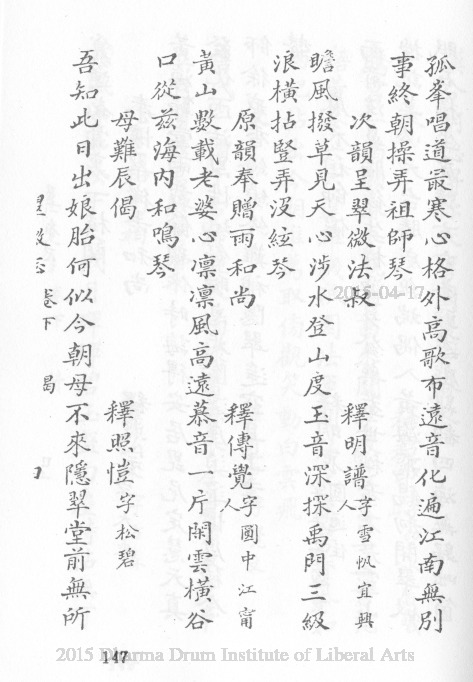 孤峯唱道最寒心格外高歌布遠音化遍江南無別
事終朝操弄祖師琴
次韻呈翠微法叔 釋明譜字雪帆宜興人
瞻風撥草見天心涉水登山度玉音深探禹門三級
浪橫拈豎弄沒絃琴
原韻奉贈雨和尚 釋傳覺字圓中江甯人
黃山數載老婆心凛凛風高遠慕音一片閑雲橫谷
口從兹海內和鳴琴
母難辰偈 釋照愷字松碧
吾知此日出娘胎何似今朝母不來隱翠堂前無所
卷下
147
2015-04-17
2015 Dharma Drum Institute of Liberal Arts